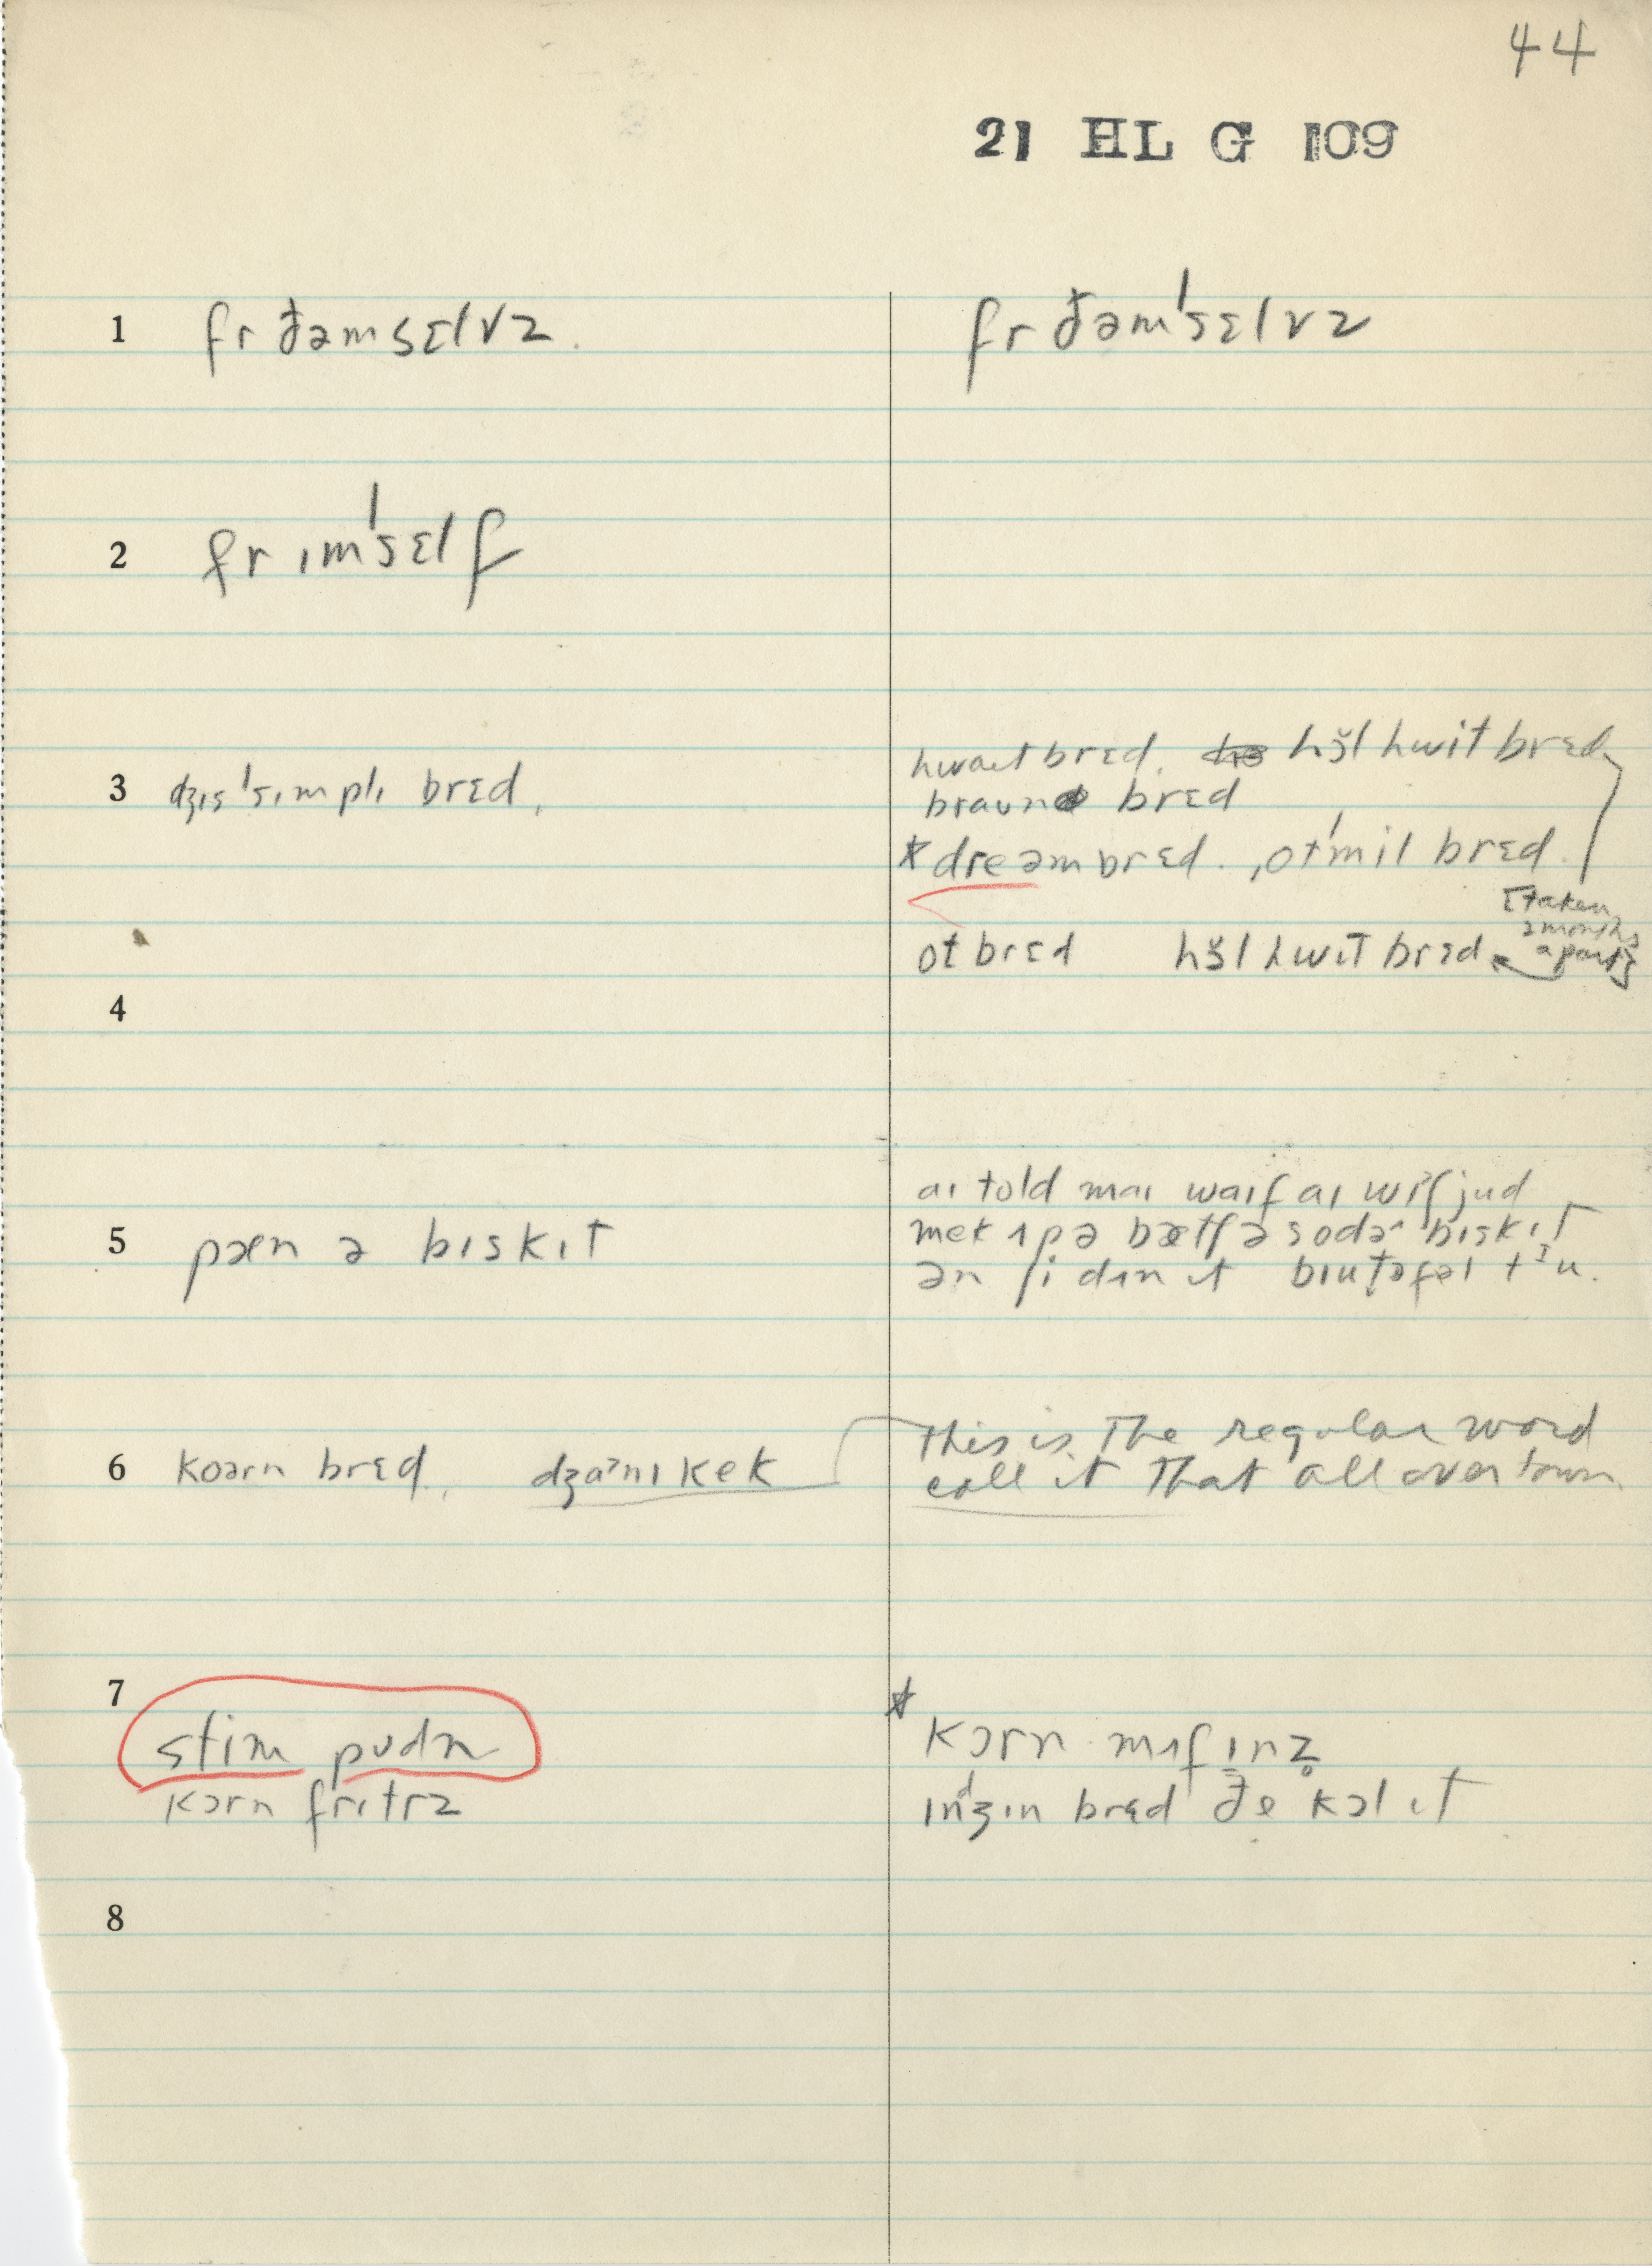 44
21 HL G 109
1 fr ðəmsɛlvz. fr ðəm'sɛlvz
2 fr ɪm'sɛlf
3 dʒɪs 'sɪmplɪ brɛd,
hwaɪt brɛd. hɜ̆l hwit brɛd
braun brɛd
*dreəm brɛd. ,ot'mil brɛd.
[taken
2 months
apart]
ot brɛd hɜ̆l hwit brɛd
4
aɪ told maɪ waɪf aɪ wɪʃ jud
5 pæn ə bɪskɪt
mek ʌp ə bætʃ ə sodə bɪskɪt
ən ʃi dʌn ɪt bɪut̬əfəl tᶦu.
6 koərn brɛd., dʒaˀnɪ kek
This is The regular word
call it That all over town
7
stim pudn
kɔrn frɪtrz
* kɔrn mʌfɪnz̥
ɪnᵈʒɪn brɛd ðe kɔl ɪt
8